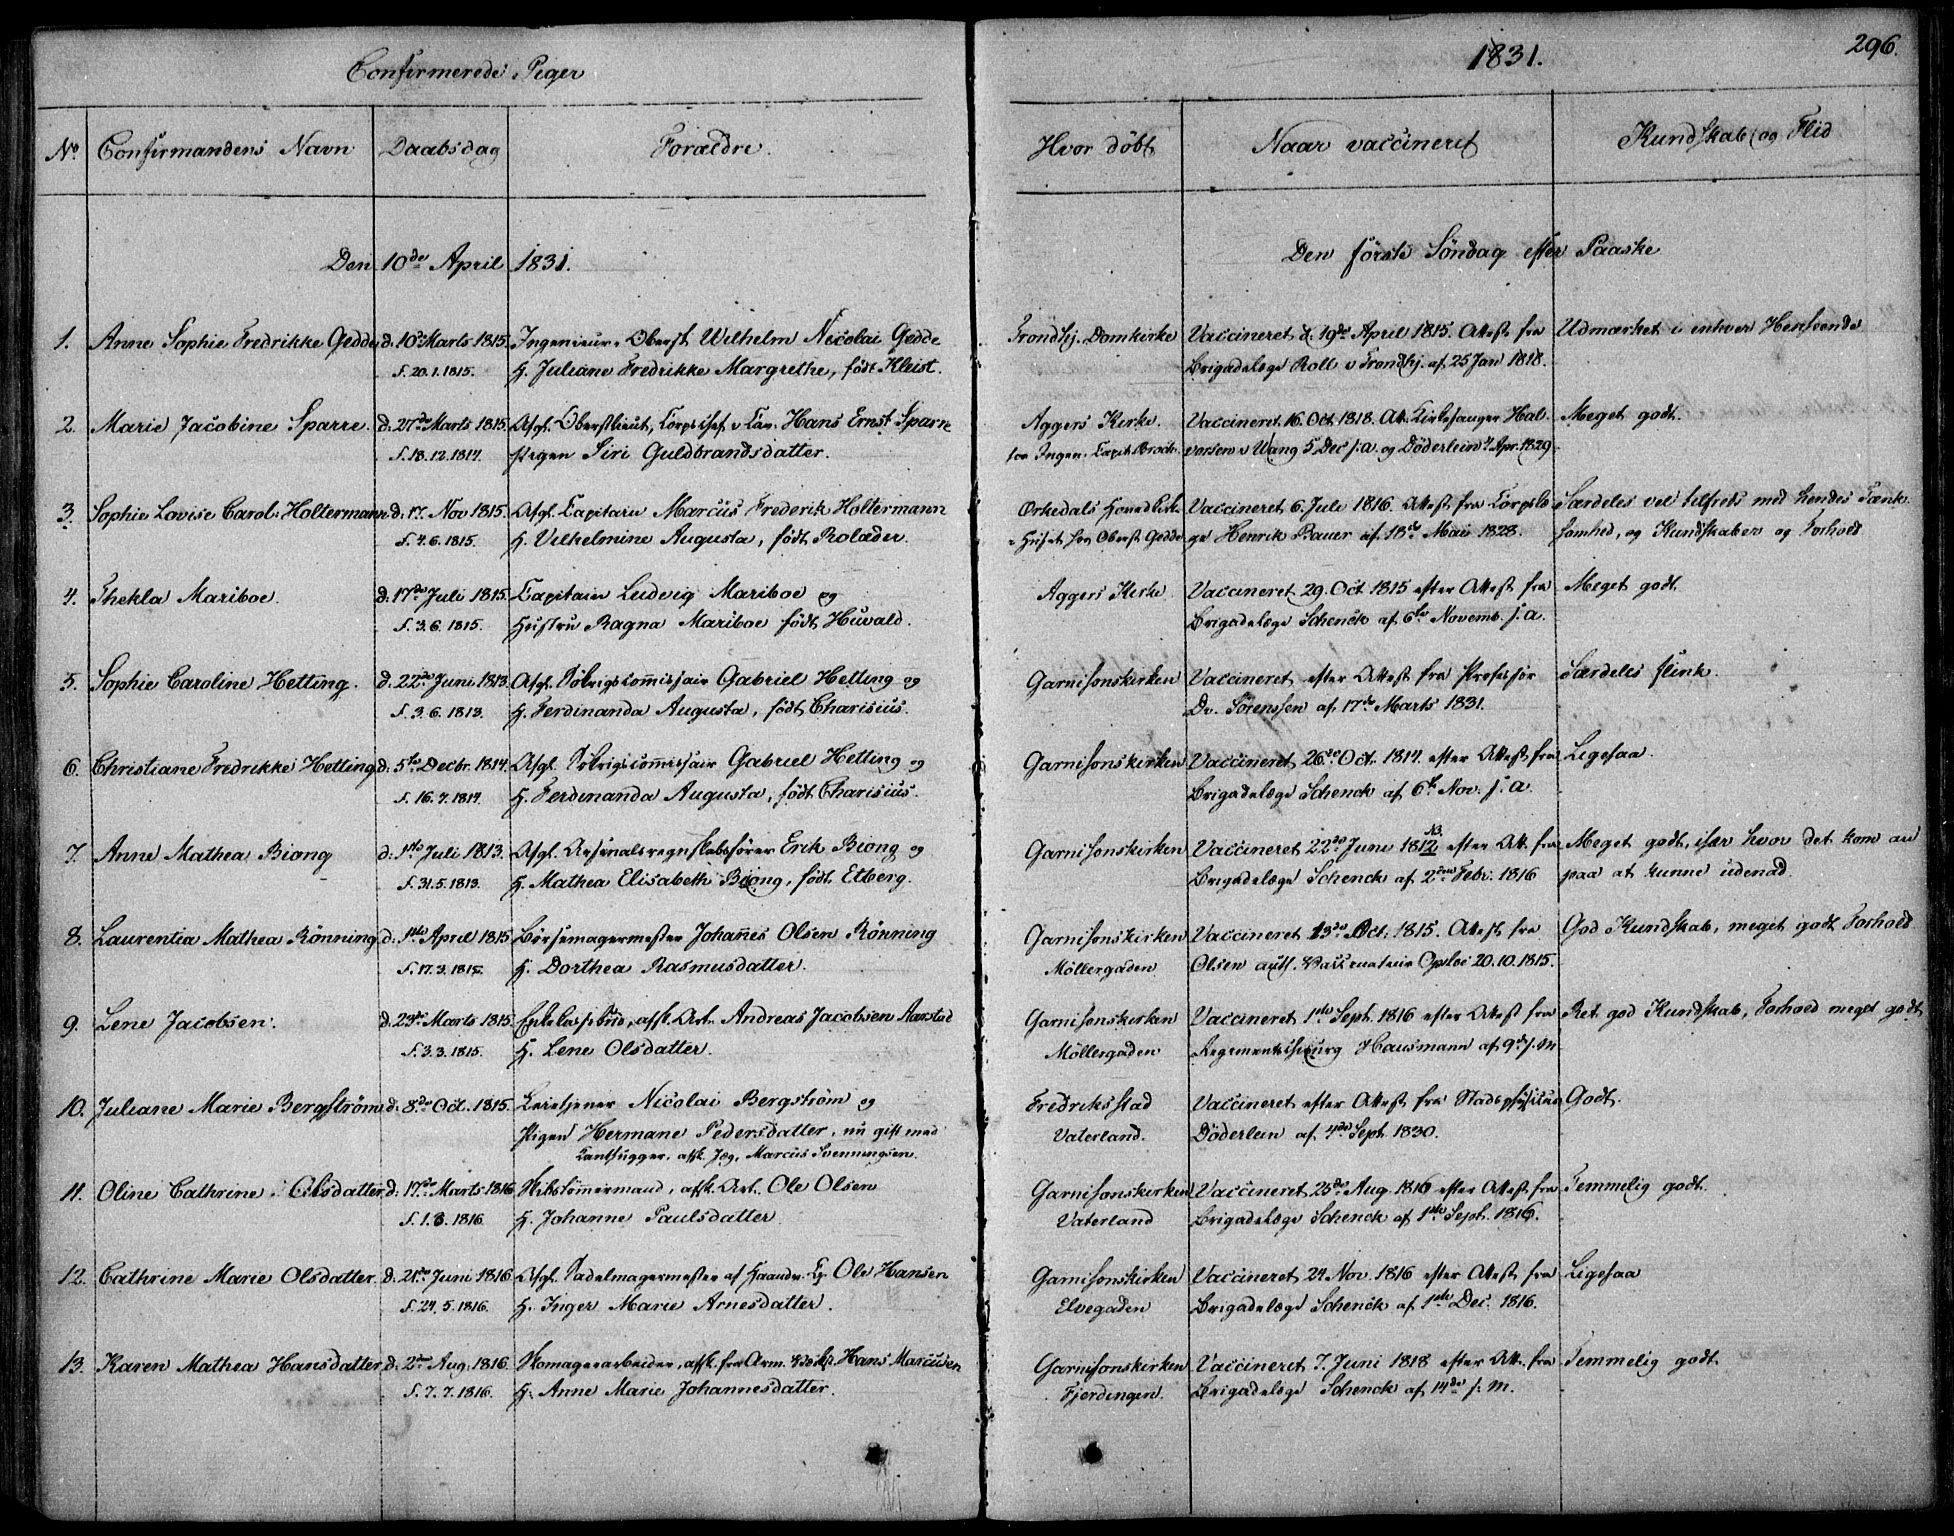 Confirmerede Piger
1831.
296.
No Confirmandens Navn Daabsdag Forældre. Hvor döbt Naar vaccineret Kundskab og Flid
Den 10de April 1831. Den förste Söndag efter Paaske
1. Anne Sophie Fredrikke Gedde d. 10de Marts 1815. Ingenieur-Oberst Wilhelm Nicolai Gedde Trondhj. Domkirke Vaccineret d. 19de April 1815. Attest fra Udmærket i enhver Henseende
f. 20.1.1815. H. Juliane Fredrikke Margrethe, födt Kleist. Brigadelæge Roll i Trondhj. af 25 Jan 1818.
2. Marie Jacobine Sparre. d. 27de Marts 1815. Afg. Oberstlieut, Corpschef v Cav. Hans Ernst Sparre Aggers Kirke. Vaccineret 16. Oct. 1818. Att. Kirkesanger Hal- Meget godt.
f. 18.12.1814. Pigen Siri Guldbrandsdatter. hos Ingen. Capit. Broch. vorsen v Wang 5 Dec s.a. og Döderlein 4 Apr. 1829.
3. Sophie Lovise Carol. Holtermann d. 17. Nov 1815. Afg. Capitain Marcus Frederik Holtermann Orkedals Hovedkirk. Vaccineret 6. Juli 1816. Attest fra Corpslæ- Særdeles vel tilfreds med hendes Tænk-
f. 4.6.1815. H. Vilhelmine Augusta, födt Rolæder. i Huset hos Oberst Gedde ge Henrik Bauer af 18de Mai 1828. somhed, og Kundskaber og Forhold
4. Thekla Mariboe. d. 17de Juli 1815. Capitain Ludvig Mariboe og Aggers Kirke Vaccineret 29. Oct 1815 efter Attest fra Meget godt
f. 3.6.1815. Hustru Ragna Mariboe födt Huvald. Brigadelæge Schenck af 6te Novemb. s.a.
5. Sophie Caroline Hetting. d. 22de Juni 1813. Afg. Sökrigscommissair Gabriel Hetting og Garnisonskirken Vaccineret efter Attest fra Professor Særdeles flink.
f. 3.6.1813. H. Ferdinanda Augusta, födt Charisius. Dr. Sörenssen af 17de Marts 1831.
6. Christiane Fredrikke Hetting d. 5te Decbr. 1814. Afg. Sökrigscommissair Gabriel Hetting og Garnisonskirken Vaccineret 26de Oct. 1814. efter Attest fra Ligesaa.
f. 16.7.1814. H. Ferdinanda Augusta, födt Charisius. Brigadelæge Schenck af 6te Nov. s.a.
7. Anne Mathea Biong d. 1ste Juli 1813. Afg. Arsenalsregnskabsförer Erik Biong og Garnisonskirken Vaccineret 22de Juni 1812 NB. efter Att. fra Meget godt, især hvor det kom an
f. 31.5.1813. H. Mathea Elisabeth Biong, födt Etberg. Brigadelæge Schenck af 2den Febr. 1816 paa at kunne udenad.
8. Laurentia Mathea Rönning d. 1ste April 1815 Börsemagermester Johannes Olsen Rönning Garnisonskirken Vaccineret 13de Oct. 1815. Attest fra God Kundskab, meget godt Forhold
f. 17.3.1815. H. Dorthea Rasmusdatter. Möllergaden Olsen auth. Vaccinateur Opsloe 20.10.1815.
9. Lene Jacobsen. d. 23de Marts 1815. afsk. Art. Andreas Jacobsen Aarstad Garnisonskirken Vaccineret 1ste Sept. 1816 efter Attest fra Ret god Kundskab, Forhold meget godt
f. 3.3.1815. H. Lene Olsdatter. Möllergaden Regimentschirurg Hausmann af 9de s.M.
10. Juliane Marie Bergström d. 8de Oct. 1815. Leietjener Nicolai Bergström og Fredriksstad Vaccineret efter Attest fra Stadsphysicus Godt.
Pigen Hermane Pedersdatter, nu gift med Vaterland. Döderlein af 4de Sept. 1830.
Tanthugger, afsk. Jæg. Marcus Svenningsen.
11. Oline Cathrine Olsdatter d. 17de Marts 1816 afsk. Art. Ole Olsen Garnisonskirken Vaccineret 25de Aug. 1816 efter Attest fra Temmelig godt.
f. 1.3.1816. H. Johanne Paulsdatter. Vaterland Brigadelæge Schenck af 1ste Sept. 1816.
12. Cathrine Marie Olsdatter. d. 21de Juni 1816 Afg. Sadelmagermester af Haandv. Cp. Ole Hansen Garnisonskirken Vaccineret 24 Nov. 1816 efter Attest fra Ligesaa
f. 24.5.1816. H. Inger Marie Arnesdatter. Elvegaden Brigadelæge Schenck af 1ste Dec. 1816.
13. Karen Mathea Hansdatter d. 2den Aug. 1816. afsk. fra Arm. Hans Marcusen Garnisonskirken Vaccineret 7. Juni 1818 efter Att. fra Temmelig godt.
f. 7.7.1816. H. Anne Marie Johannesdatter. Fjerdingen. Brigadelæge Schenck af 14de s.M.